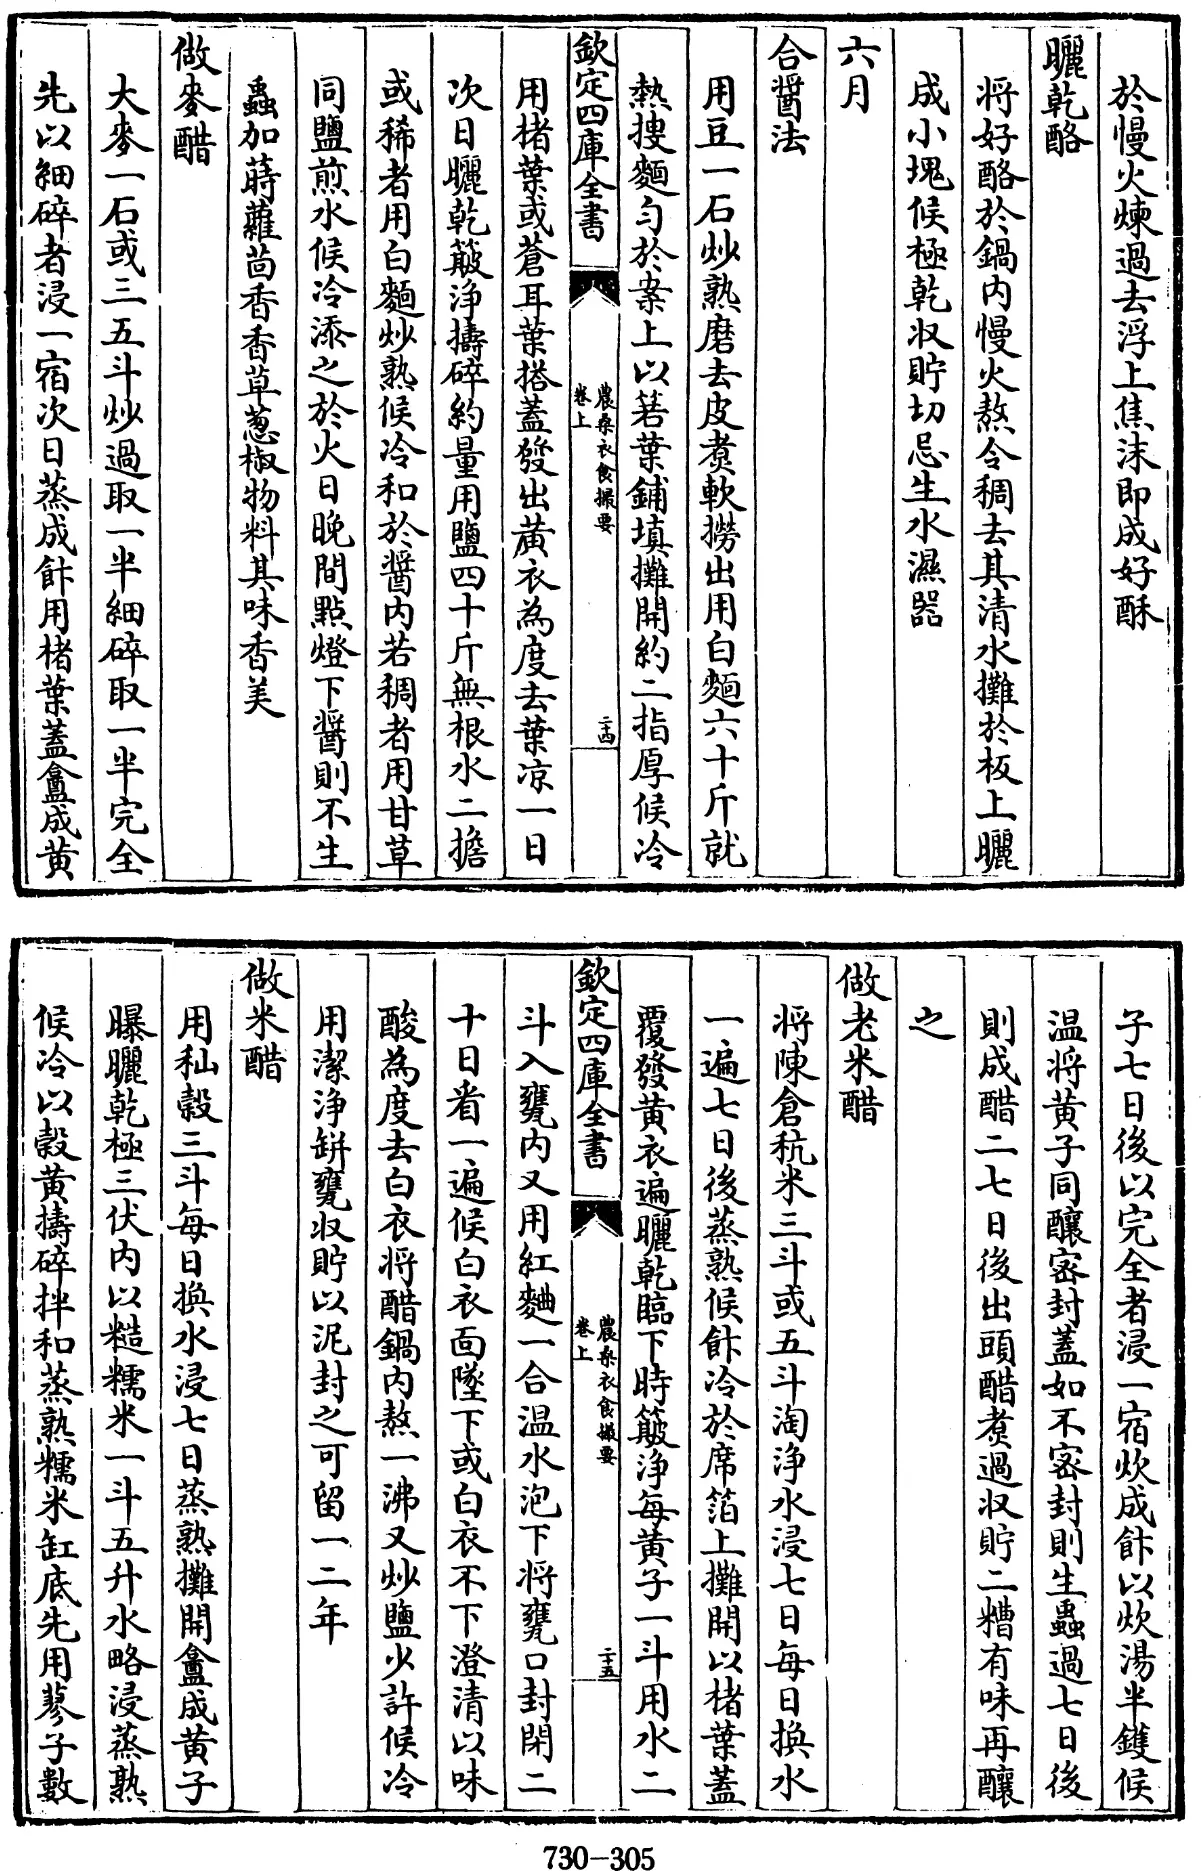 於慢火煉過去浮上焦沫即成好酥
曬乾酪
將好酪於鍋内慢火熬令稠去其清水攤於板上曬
成小塊候極乾収貯切忌生水濕器
六月
合醬法
用豆一石炒熟磨去皮煑軟撈出用白麵六十斤就
熱搜麵勻於案上以箬葉鋪填攤開約二指厚候冷
欽定四庫全書
農桑衣食撮要
卷上
二十四
用楮葉或蒼耳葉搭蓋發出黄衣為度去葉凉一日
次日曬乾簸淨擣碎約量用鹽四十斤無根水二擔
或稀者用白麵炒熟候冷和於醬内若稠者用甘草
同鹽煎水候冷添之於火日晚間點燈下醬則不生
蟲加蒔蘿茴香香草葱椒物料其味香美
做麥醋
大麥一石或三五斗炒過取一半細碎取一半完全
先以細碎者浸一宿次日蒸成飰用楮葉蓋盦成黄
子七日後以完全者浸一宿炊成飰以炊湯半鑊候
温將黄子同釀密封蓋如不密封則生蟲過七日後
則成醋二七日後出頭醋煑過収貯二糟有味再釀
之
做老米醋
將陳倉秔米三斗或五斗淘淨水浸七日每日換水
一遍七日後蒸熟候飰冷於席箔上攤開以楮葉蓋
覆發黄衣遍曬乾臨下時簸淨每黄子一斗用水二
欽定四庫全書
農桑衣食撮要
卷上
二十五
斗入甕内又用紅麯一合温水泡下將甕口封閉二
十日看一遍候白衣面墜下或白衣不下澄清以味
酸為度去白衣將醋鍋内熬一沸又炒鹽少許候冷
用潔淨缾甕収貯以泥封之可留一二年
做米醋
用秈穀三斗每日換水浸七日蒸熟攤開盦成黄子
曝曬乾極三伏内以糙糯米一斗五升水略浸蒸熟
候冷以穀黄擣碎拌和蒸熟糯米缸底先用蓼子數
730-305